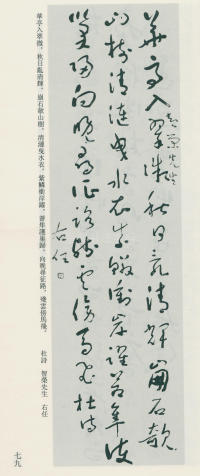 華亭入翠微秋日亂清輝崩石欹
山樹清漣曳水衣紫鱗衝岸躍蒼隼護
巢歸向晚尋征路殘雲傍馬飛杜詩
智榮先生
右任
華亭入翠微，秋日亂清輝。崩石欹山樹，清漣曳水衣。紫鱗衝岸躍，蒼隼護巢歸。向晚尋征路，殘雲傍馬飛。
杜詩　智榮先生　右任
七九